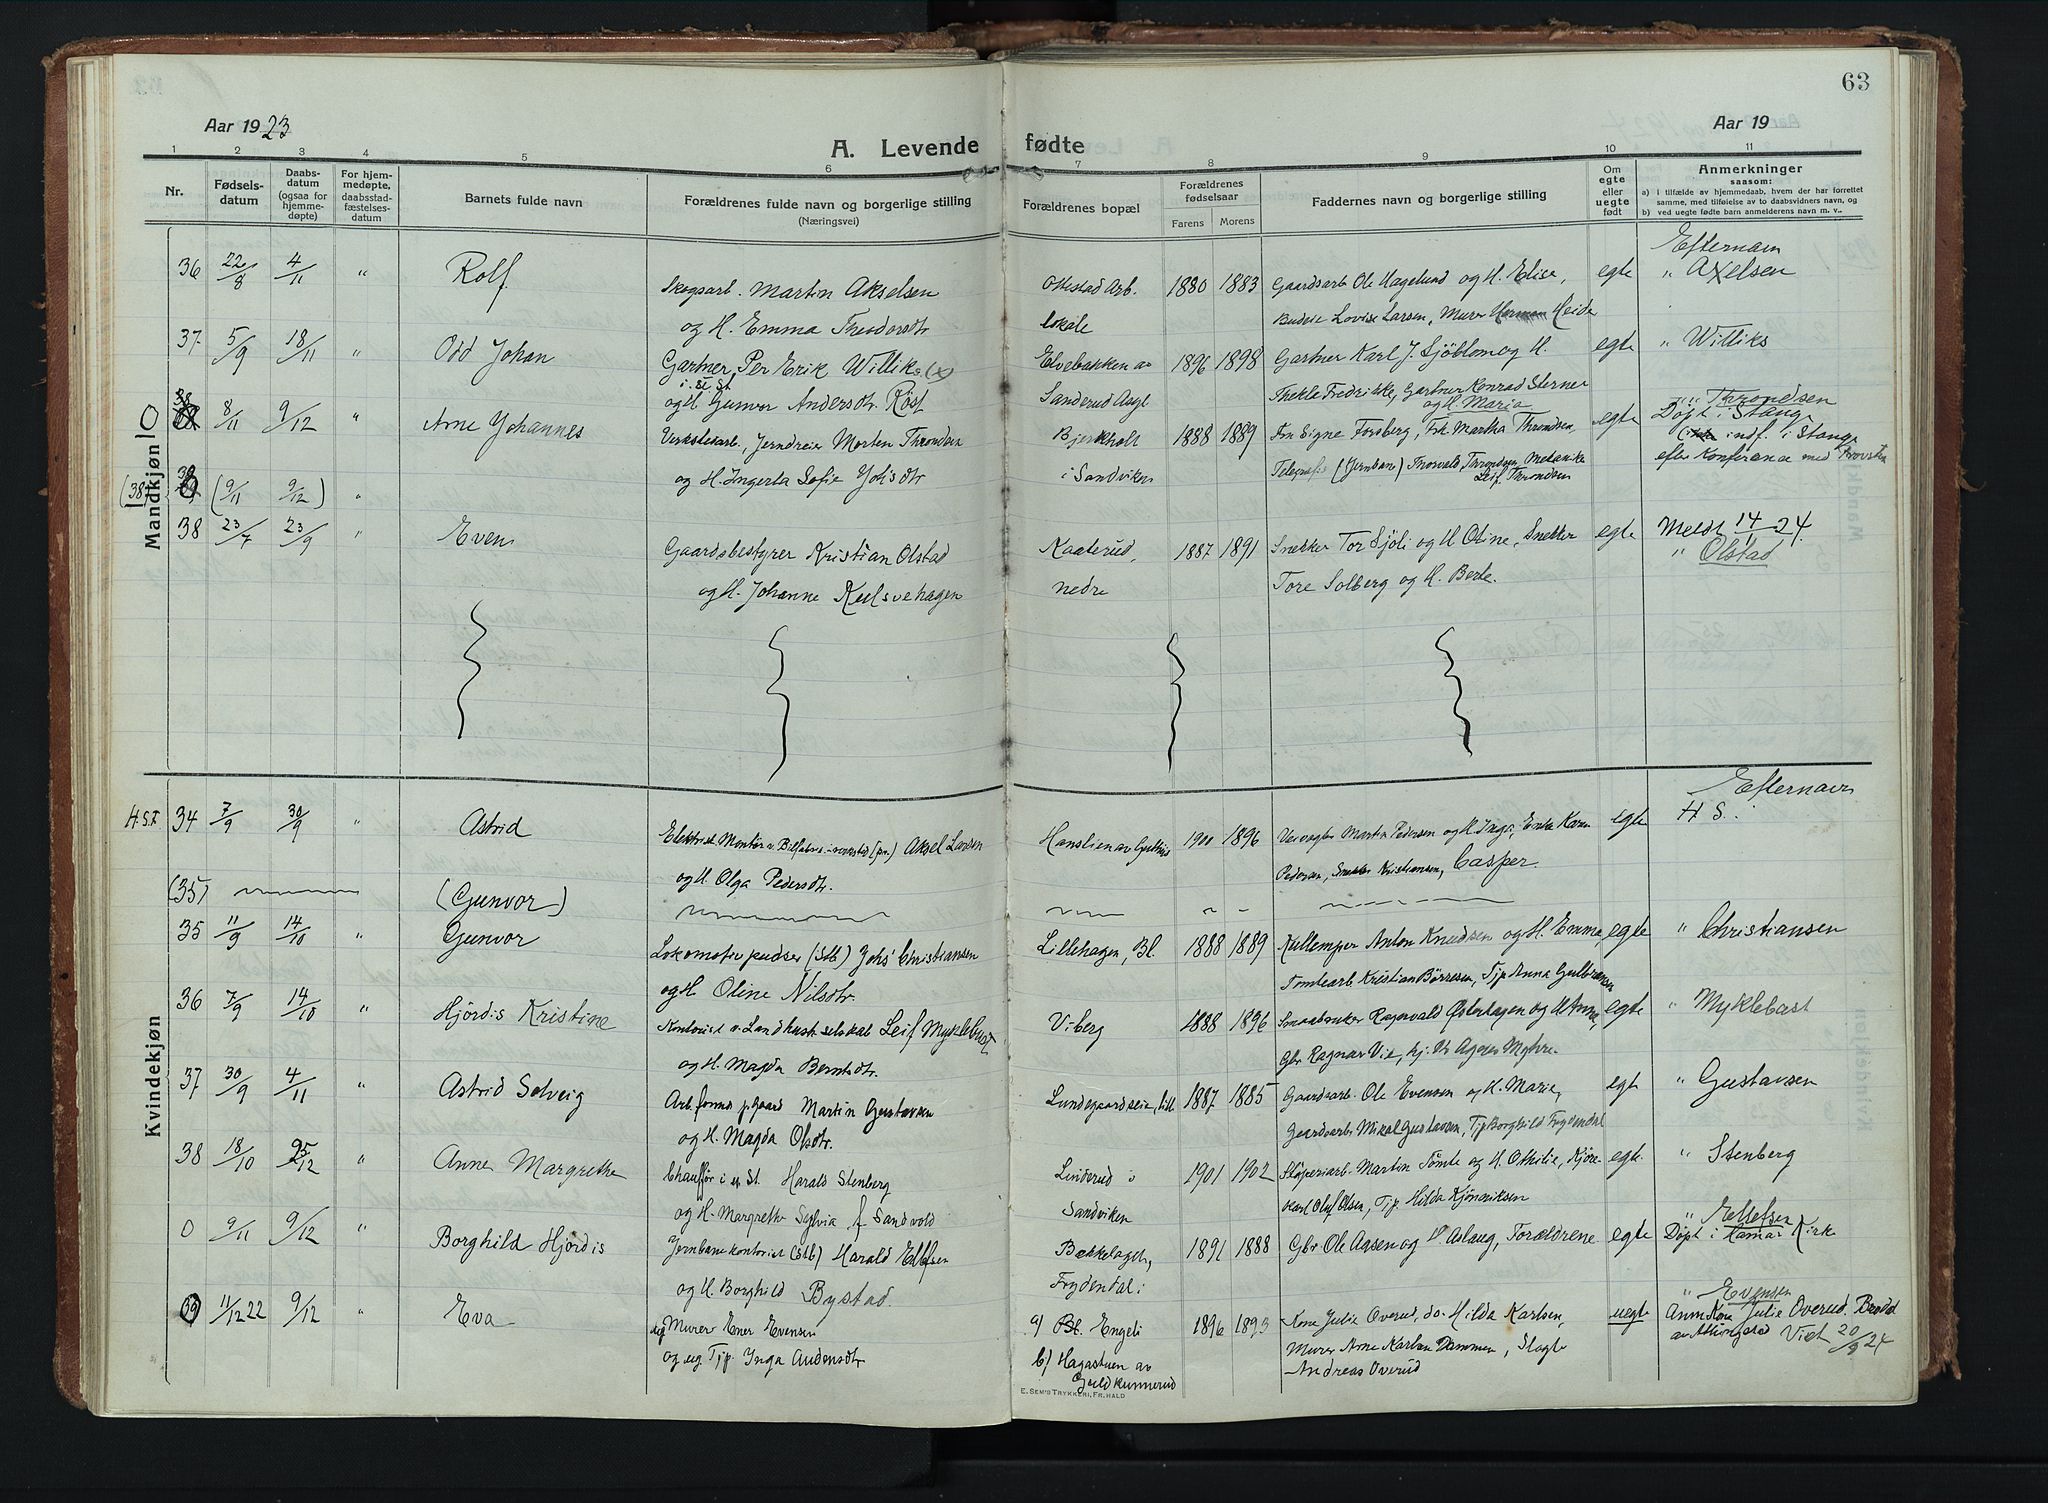 63
Aar 1923
Aar 19
A. Levende fødte
1 2 3 4 5 6 7 8 9 10 11
Nr.
Fødsels-
datum
Daabs-
datum
(ogsaa for
hjemme-
døpte)
For hjem-
medøpte,
daabsstad-
fæstelses-
datum
Barnets fulde navn
Forældrenes fulde navn og borgerlige stilling
(Næringsvei)
Forældrenes bopæl
Forældrenes
fødselsaar
Farens Morens
Faddernes navn og borgerlige stilling
Om
egte
eller
uegte
født
Anmerkninger
saasom:
a) i tilfælde av hjemmedaab, hvem der har forrettet
samme, med tilføielse av to daabsvidners navn, og
b) ved uegte fødte barn anmelderens navn m. v..
Mandkjøn
Efternavn
36 22/8 4/11 " Rolf Skogsarb. Martin Akselsen Ottestad Arb. 1880 1883 Gaardsarb Ole Hagelund og H. Elise, egte " Axelsen
og H. Emma Theodorsdtr lokale Budeie Lovise Larsen, Murer Heide
37 5/9 18/11 " Odd Johan Gartner Per Erik Williks (x) Elvebakken av 1896 1898 Gartner Karl J. Sjöblom og H. egte " Williks
i St
og H. Gunvor Andersdtr. Röst Sanderud Asyl Thekle Fredrikke, Gartner Konrad Sterner
og H. Maria
" Throndsen
38 8/11 9/12 " Arne Johannes Verkstedsarb, Jerndreier Morten Throndsen Bjerkholt 1888 1889 Fru Signe Forsberg, Frk Martha Throndsen, egte Døpt i Stange
0
og H. Ingerta Sofie Johsdtr i Sandviken Telegrafist (Jernbane) Thorvald Throndsen, Mekanike
Leif Throndsen
indf. i Stange
efter Konferanse med Provsten
(38) (9/11 9/12) "
38 23/7 23/9 " Even Gaardsbestyrer Kristian Olstad Kaaterud, 1887 1891 Snekker Tor Sjöli og H Oline, Snekker egte Meldt 14/11 24.
" Olstad
og H. Johanne Kulsvehagen nedre Tore Solberg og H. Berte.
Kvindekjøn
Efternavn
H.S.F. 34 7/9 30/9 " Astrid Elektrisk Montør Aksel Larsen Hanslien av 1900 1896 Martin Pedersen og H Inga, Enke Karen egte H S.
og H. Olga Pedersdtr. Pedersen, Snekker Kristiansen, Casper.
(35) (Gunvor)
35 11/9 14/10 " Gunvor Lokomotivpudser (Stb) Johs' Christiansen Lillehagen, Bl. 1888 1889 Anton Knudsen og H. Emma, egte " Christiansen
og H Oline Nilsdtr. Tomtearb Kristian Börresen, Tjp Anna Gulbransen
36 7/9 14/10 " Hjördis Kristine Kontorist v. Landhush. selskab Leif Myklebust Viberg 1888 1896 Smaabruker Ragnvald Østerhagen og H Anna, egte " Myklebast
og H. Magda Berntsdtr. Gbr Ragnar Vie, Agnes Myhre.
37 30/9 4/11 " Astrid Solveig Arb.formd p. Gaard Martin Gustavsen Lundegaardseie, 1887 1885 Gaardsarb. Ole Evensen og H. Marie, egte " Gustavsen
og H. Magda Olsdtr. Gaardsarb Mikal Gustavsen, Tjp Borghild Frydendal
38 18/10 25/12 " Anne Margrethe Chauffør i St. Harald Stenberg Linderud i 1901 1902 Støperiarb. Martin Tomte og H. Othilie, Kjøre- egte. " Stenberg
og H. Margrethe Sylvia f Sandvold Sandviken karl Oluf Olsen, Tjp. Hilda Kjönniksen
" Ellefsen
0 9/11 9/12 " Borghild Hjördis Jernbanekontorist (Stb) Harald Ellefsen Bækkelaget, 1891 1888 Gbr Ole Aasen og H Aslaug, Forældrene egte Døpt i Hamar Kirke
og H. Borghild Bystad. Frydendal:
" Evensen
39 11/12 22 9/12 " Eva Murer Ener Evensen a) Bl. Engeli 1896 1893 Kone Julie Overud, do. Hilda Karlsen, uegte Anm Kone Julie Overud.
og ug Tjp. Inga Andersdtr b) Hagastuen av Murer Arne Karlsen Dammen, Andreas Overud Viet 20/9 24
Guldkunnerud
E. SEM'S TRYKKERI, FR.HALD